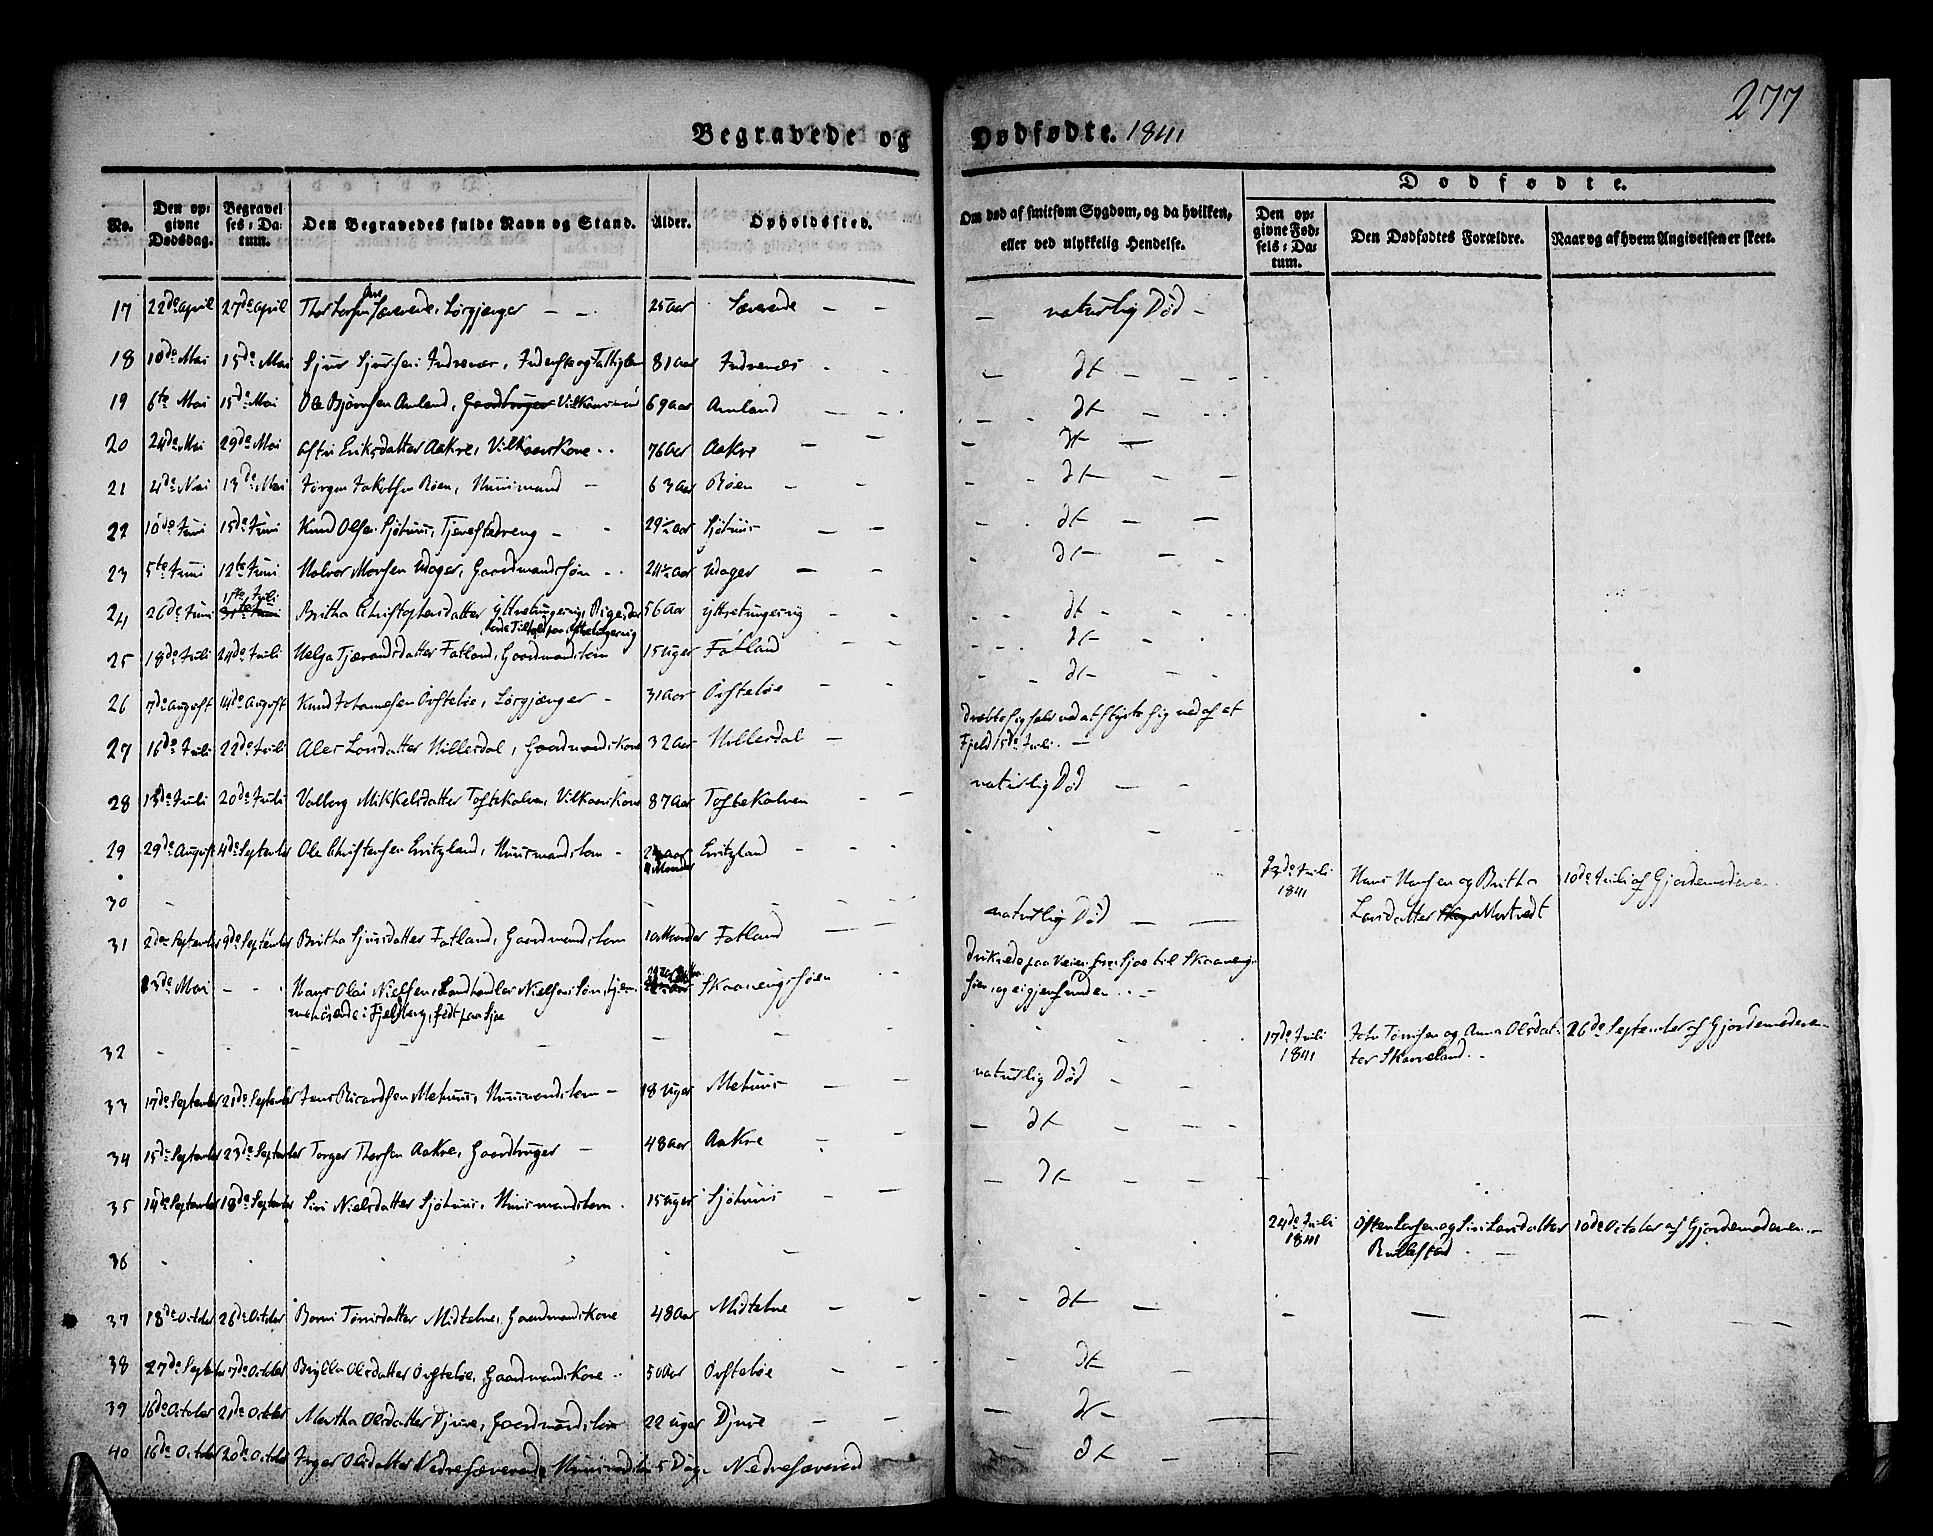 277
Begravede og Dødfødte. 1841
Dødfødte.
No.
Den op-
givne
Dødsdag.
Begravel-
ses-Da-
tum.
Den Begravedes fulde Navn og Stand.
Alder.
Opholdssted.
Om død af smitsom Sygdom, og da hvilken,
eller ved ulykkelig Hendelse.
Den op-
givne Fød-
sels-Da-
tum.
Den Dødfødtes Forældre.
Naar og af hvem Angivelsen er skeet.
17 22de april 27de april Thor Larsen Særvende, Lørgjænger 25 aar Særvende naturlig Død
18 10de Mai 15de Mai Sjur Sjursen Indrenæs, 81 aar Indrenæs dt
19 6te Mai 15de Mai Ole Bjørnsen Amland, Gaardbruger Vilkaarsmand 69 aar Amland dt
20 24de Mai 29de Mai Eriksdatter Aakre, Vilkaarskone 76 aar Aakre dt
21 4de Mai 13de Mai Jørgen Jakobsen Røen, Huusmand 63 aar Røen dt
22 10de Juni 15de Juni Knud Olsen Sjøhuus, Tjenestedreng 29½ aar Sjøhuus dt
23 5te Juni 12te Juni Halvor Monsen Udager, Gaardmandssøn 24½ aar Udager dt
24 26de Juni 1ste Juli Britha Christophersdatter Yttretungesvig, 56 aar Yttretungesvig dt
25 18de Juli 24de Juli Helga Tjærandsdatter Fatland, Gaardmandsbarn 15 uger Fatland dt
26 7de august 14de august Knud Johannesen Østebøe, Lørgjænger 31 aar Østebøe dt
27 16de Juli 22de Juli Larsdatter Hillesdal, Gaardmandskone 32 aar Hillesdal dræbte sig selv ved at styrte sig ned af et
Fjeld 15de Juli.
28 13de Juli 20de Juli Valborg Mikkelsdatter Toftekalven, Vilkaarskone 87 aar Toftekalven naturlig Død
29 29de august 4de September Ole Christensen Eritzland, Huusmandsbarn Eritzland
30 23de Juli
1841 Hans Hansen og Britha
Larsdatter Mortvedt 10de Juli af Gjordemoderen
31 2den September 9de September Britha Sjursdatter Fatland, Gaardmandsbarn 10 Maaneder Fatland naturlig Død
13de Mai Hans Olai Nielsen, Landhandler Nielsens Søn, hjem-
mehørende i Fjelberg, født paa Sjoe Skaanevigssøen druknede paa Veien fra Sjoe til Skaanevigs-
søen, og ei gjenfunden
32 17de Juli
1841 Tønnisen og Anna Olsdat-
ter Skarveland. 26de September af Gjordemoderen
33 17de September 21de September Jens Ricardsen Mehuus, Huusmandsbarn 18 uger Mehuus naturlig Død
34 15de September 23de September Torger Thorsen Aakre, Gaardbruger 48 aar Aakre dt
35 14de September 18de September Siri Nielsdatter Sjøhuus, Huusmandsbarn 15 uger Sjøhuus dt
36 24de Juli
1841 Østen Larsen og Siri Larsdatter
Rullestad 10de October af Gjordemoderen
37 18de October 26de October Tønnisdatter Midtebøe, Gaardmandskone 48 aar Midtebøe dt
38 27de September 7de October Olsdatter Østebøe, Gaardmandskone 50 aar Østebøe dt
39 16de October 21de October Martha Olsdatter Djure, Gaardmandsbarn 22 uger Djure dt
40 16de October 20de October Inger Olsdatter Nedresærevende Huusmandsbarn 5 Dage Nedresæverend dt